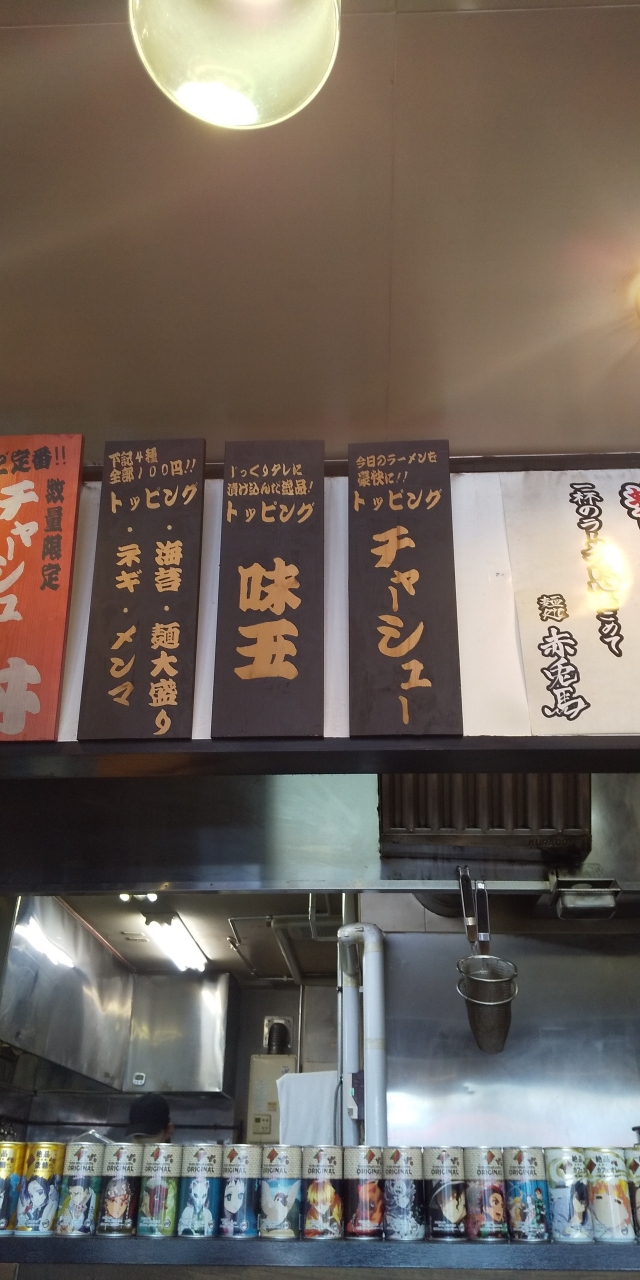 ご定番!!
数量限定
チャーシュー
丼
下記4種
全部100円!!
トッピング
・海苔・麺大盛り
・ネギ・メンマ
じっくりタレに
漬け込んだ逸品!
トッピング
味玉
今日のラーメンを
豪快に!!
トッピング
チャーシュー
麺や
赤兎馬
ORIGINAL
ORIGINAL
ORIGINAL
ORIGINAL
ORIGINAL
ORIGINAL
ORIGINAL
ORIGINAL
ORIGINAL
ORIGINAL
ORIGINAL
ORIGINAL